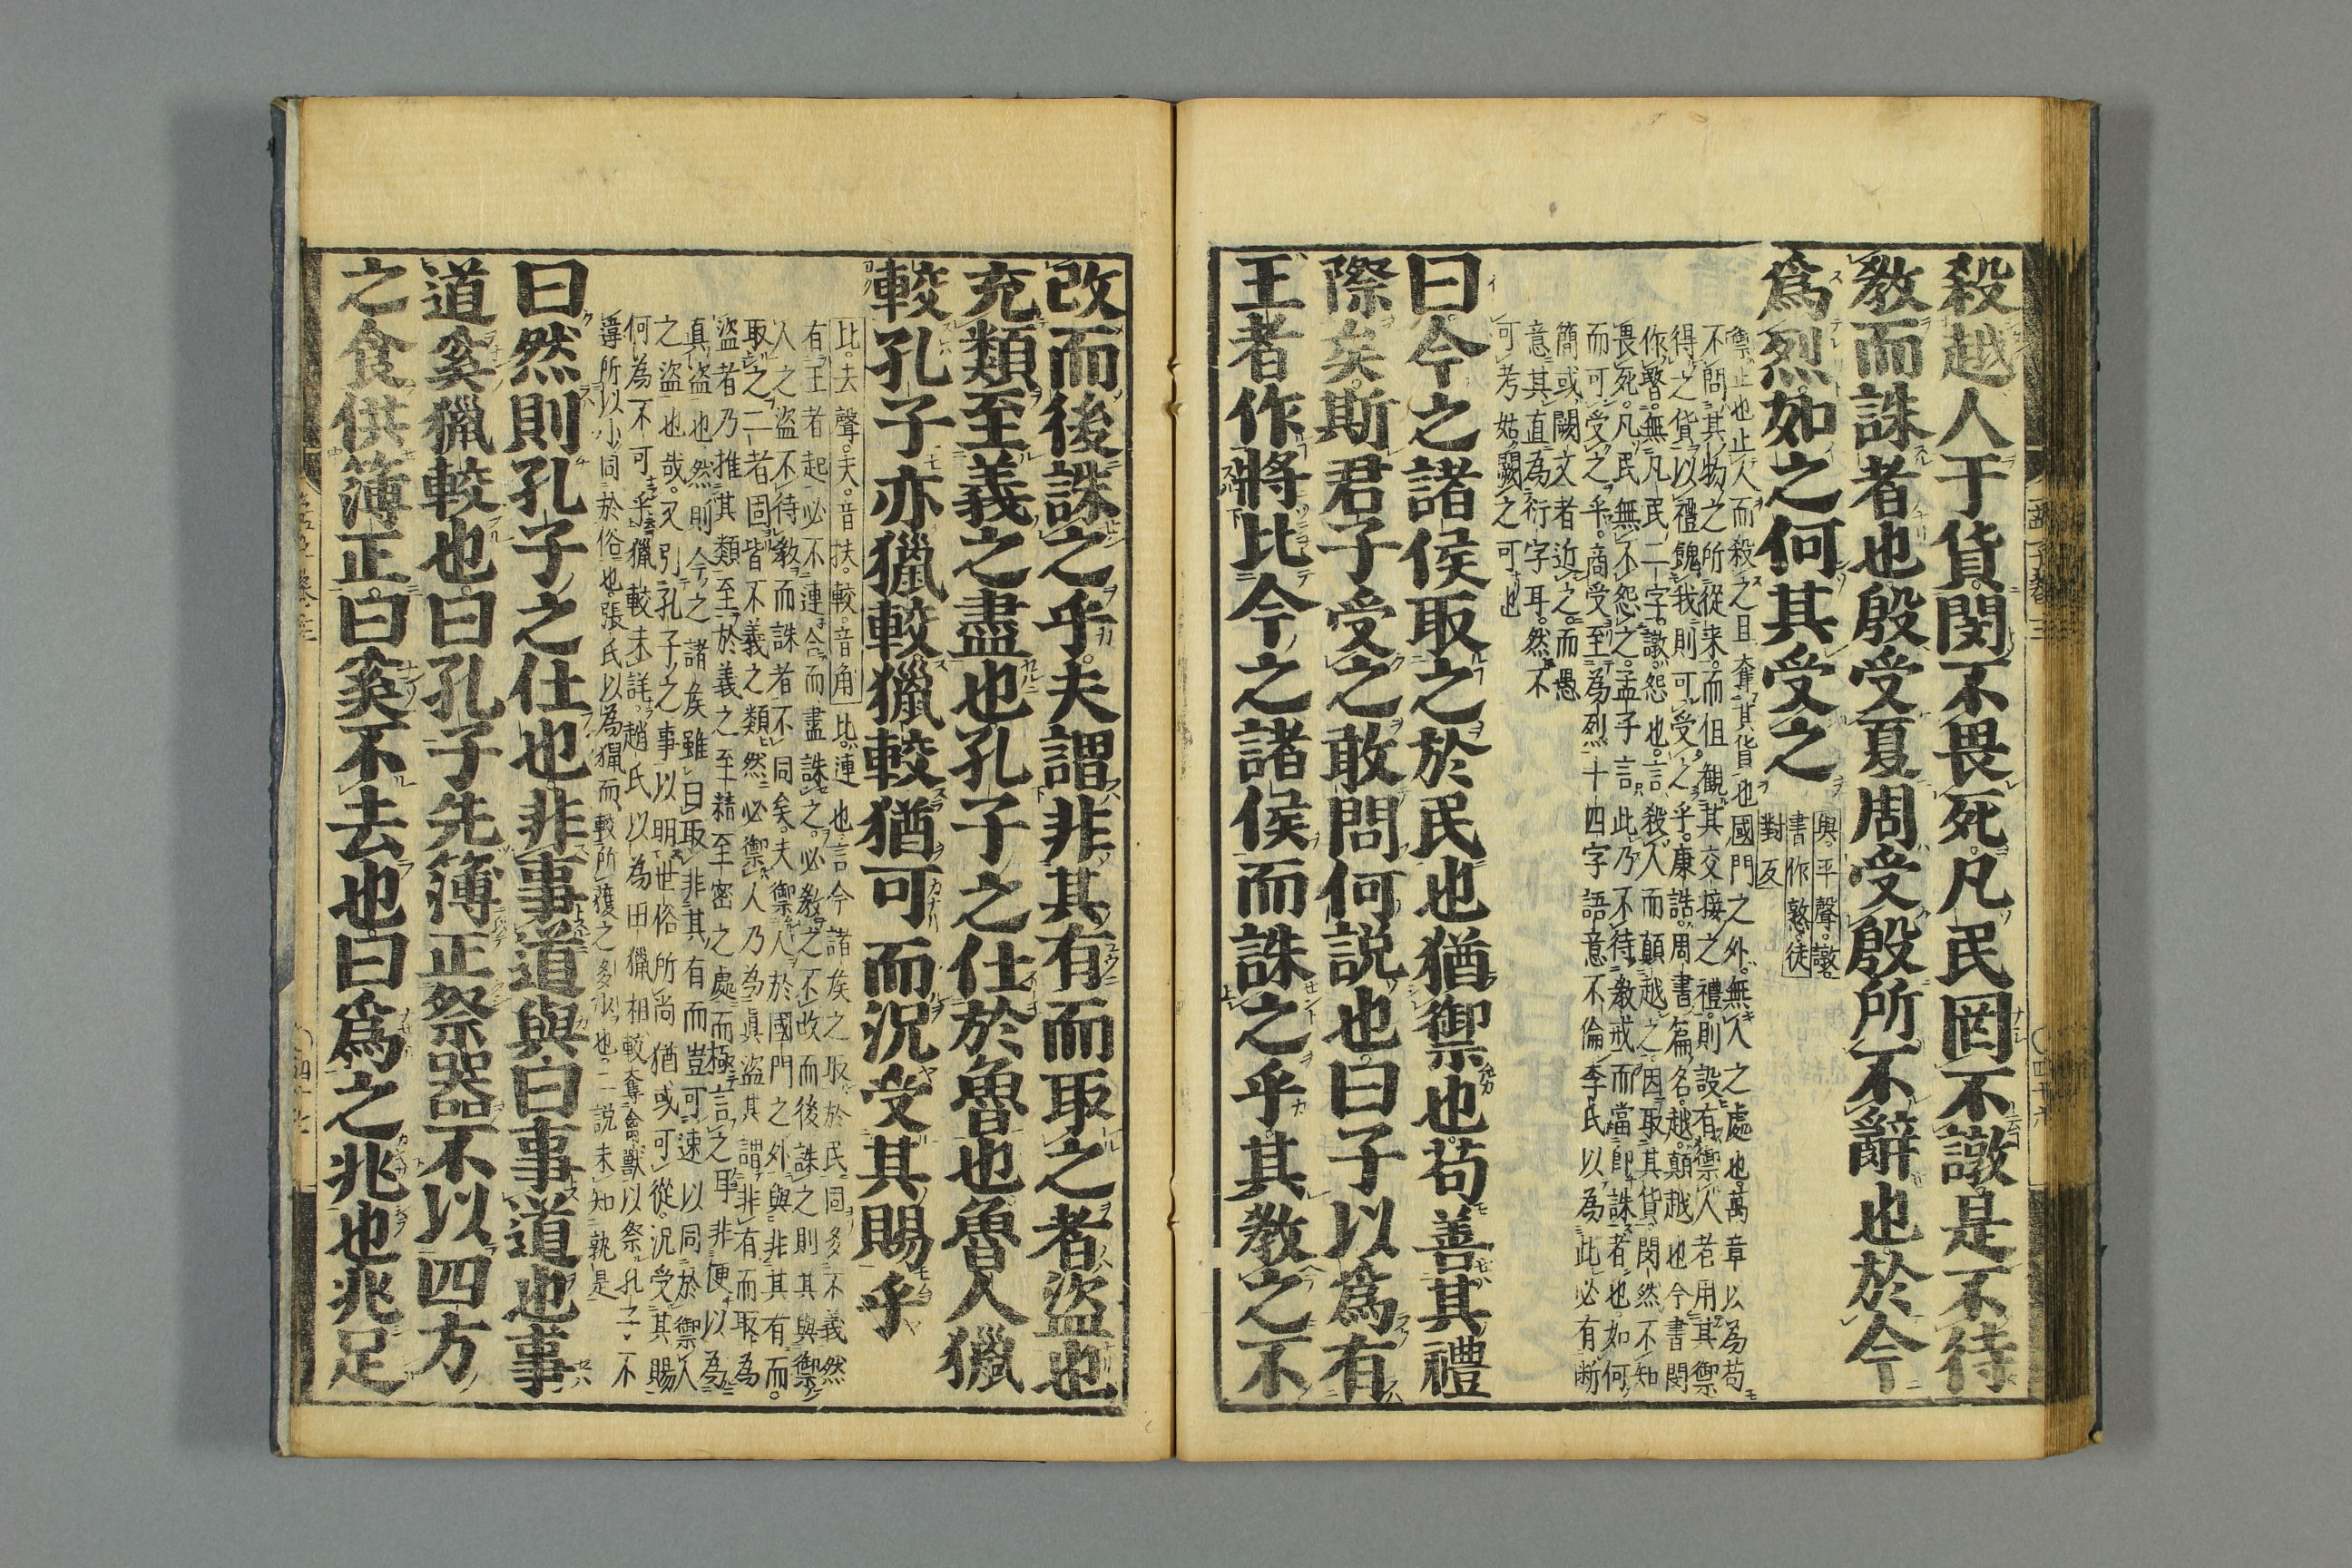 殺越人于貨閔不畏死凡民罔不譈是不待
教而誅者也殷受夏周受殷所不辭也於今
爲烈如之何其受之
與。平聲。譈。
書作憝。徒
對反
禦。止也止人而殺之且奪其貨也國門之外。無人之處也萬章以為苟
不問其物之所從来。而但觀其交接之禮。則設有禦人者用其禦
得之貨以禮餽我則可受之乎。康誥。周書篇名。越。顛越也今書閔
作暋。無凡民二字。譈。怨也。言殺人而顛越之因取其貨閔然不知
畏死。凡民無不怨之。孟子言此乃不待教戒而當即誅者也。如何
而可受之乎。商受至為烈十四字語意不倫李氏以為此必有断
簡或闕文者近之。而愚
意其直為衍字耳。然不
可考姑闕之可也
曰今之諸侯取之於民也猶禦也苟善其禮
際矣斯君子受之敢問何説也曰子以爲有
王者作將比今之諸侯而誅之乎其教之不
改而後誅之乎夫謂非其有而取之者盗也
充類至義之盡也孔子之仕於魯也魯人獵
較孔子亦獵較獵較猶可而況受其賜乎
比。去聲。夫。音扶。較。音角 比。連也。言今諸侯之取於民固多不義然
有王者起必不連合而盡誅之。必教之不改而後誅之則其與禦
人之盗不待教而誅者不同矣。夫禦人於國門之外與非其有而
取之二者固皆不義之類。然必禦人乃為眞盗其謂非有而取為
盗者乃推其類至於義之至精至密之處而極言之耳非便以為
真盗也。然則今之諸侯雖曰取非其有而豈可遽以同於禦人
之盗也哉。又引孔子之事以明世俗所尚猶或可從。況受其賜
何為不可乎獵較未詳趙氏以為田獵相較奪禽獸以祭孔子不
違所以小同於俗也。張氏以為獵而較所獲之多少也。二説未知孰是
曰然則孔子之仕也非事道與曰事道也事
道奚獵較也曰孔子先簿正祭器不以四方
之食供簿正曰奚不去也曰爲之兆也兆足